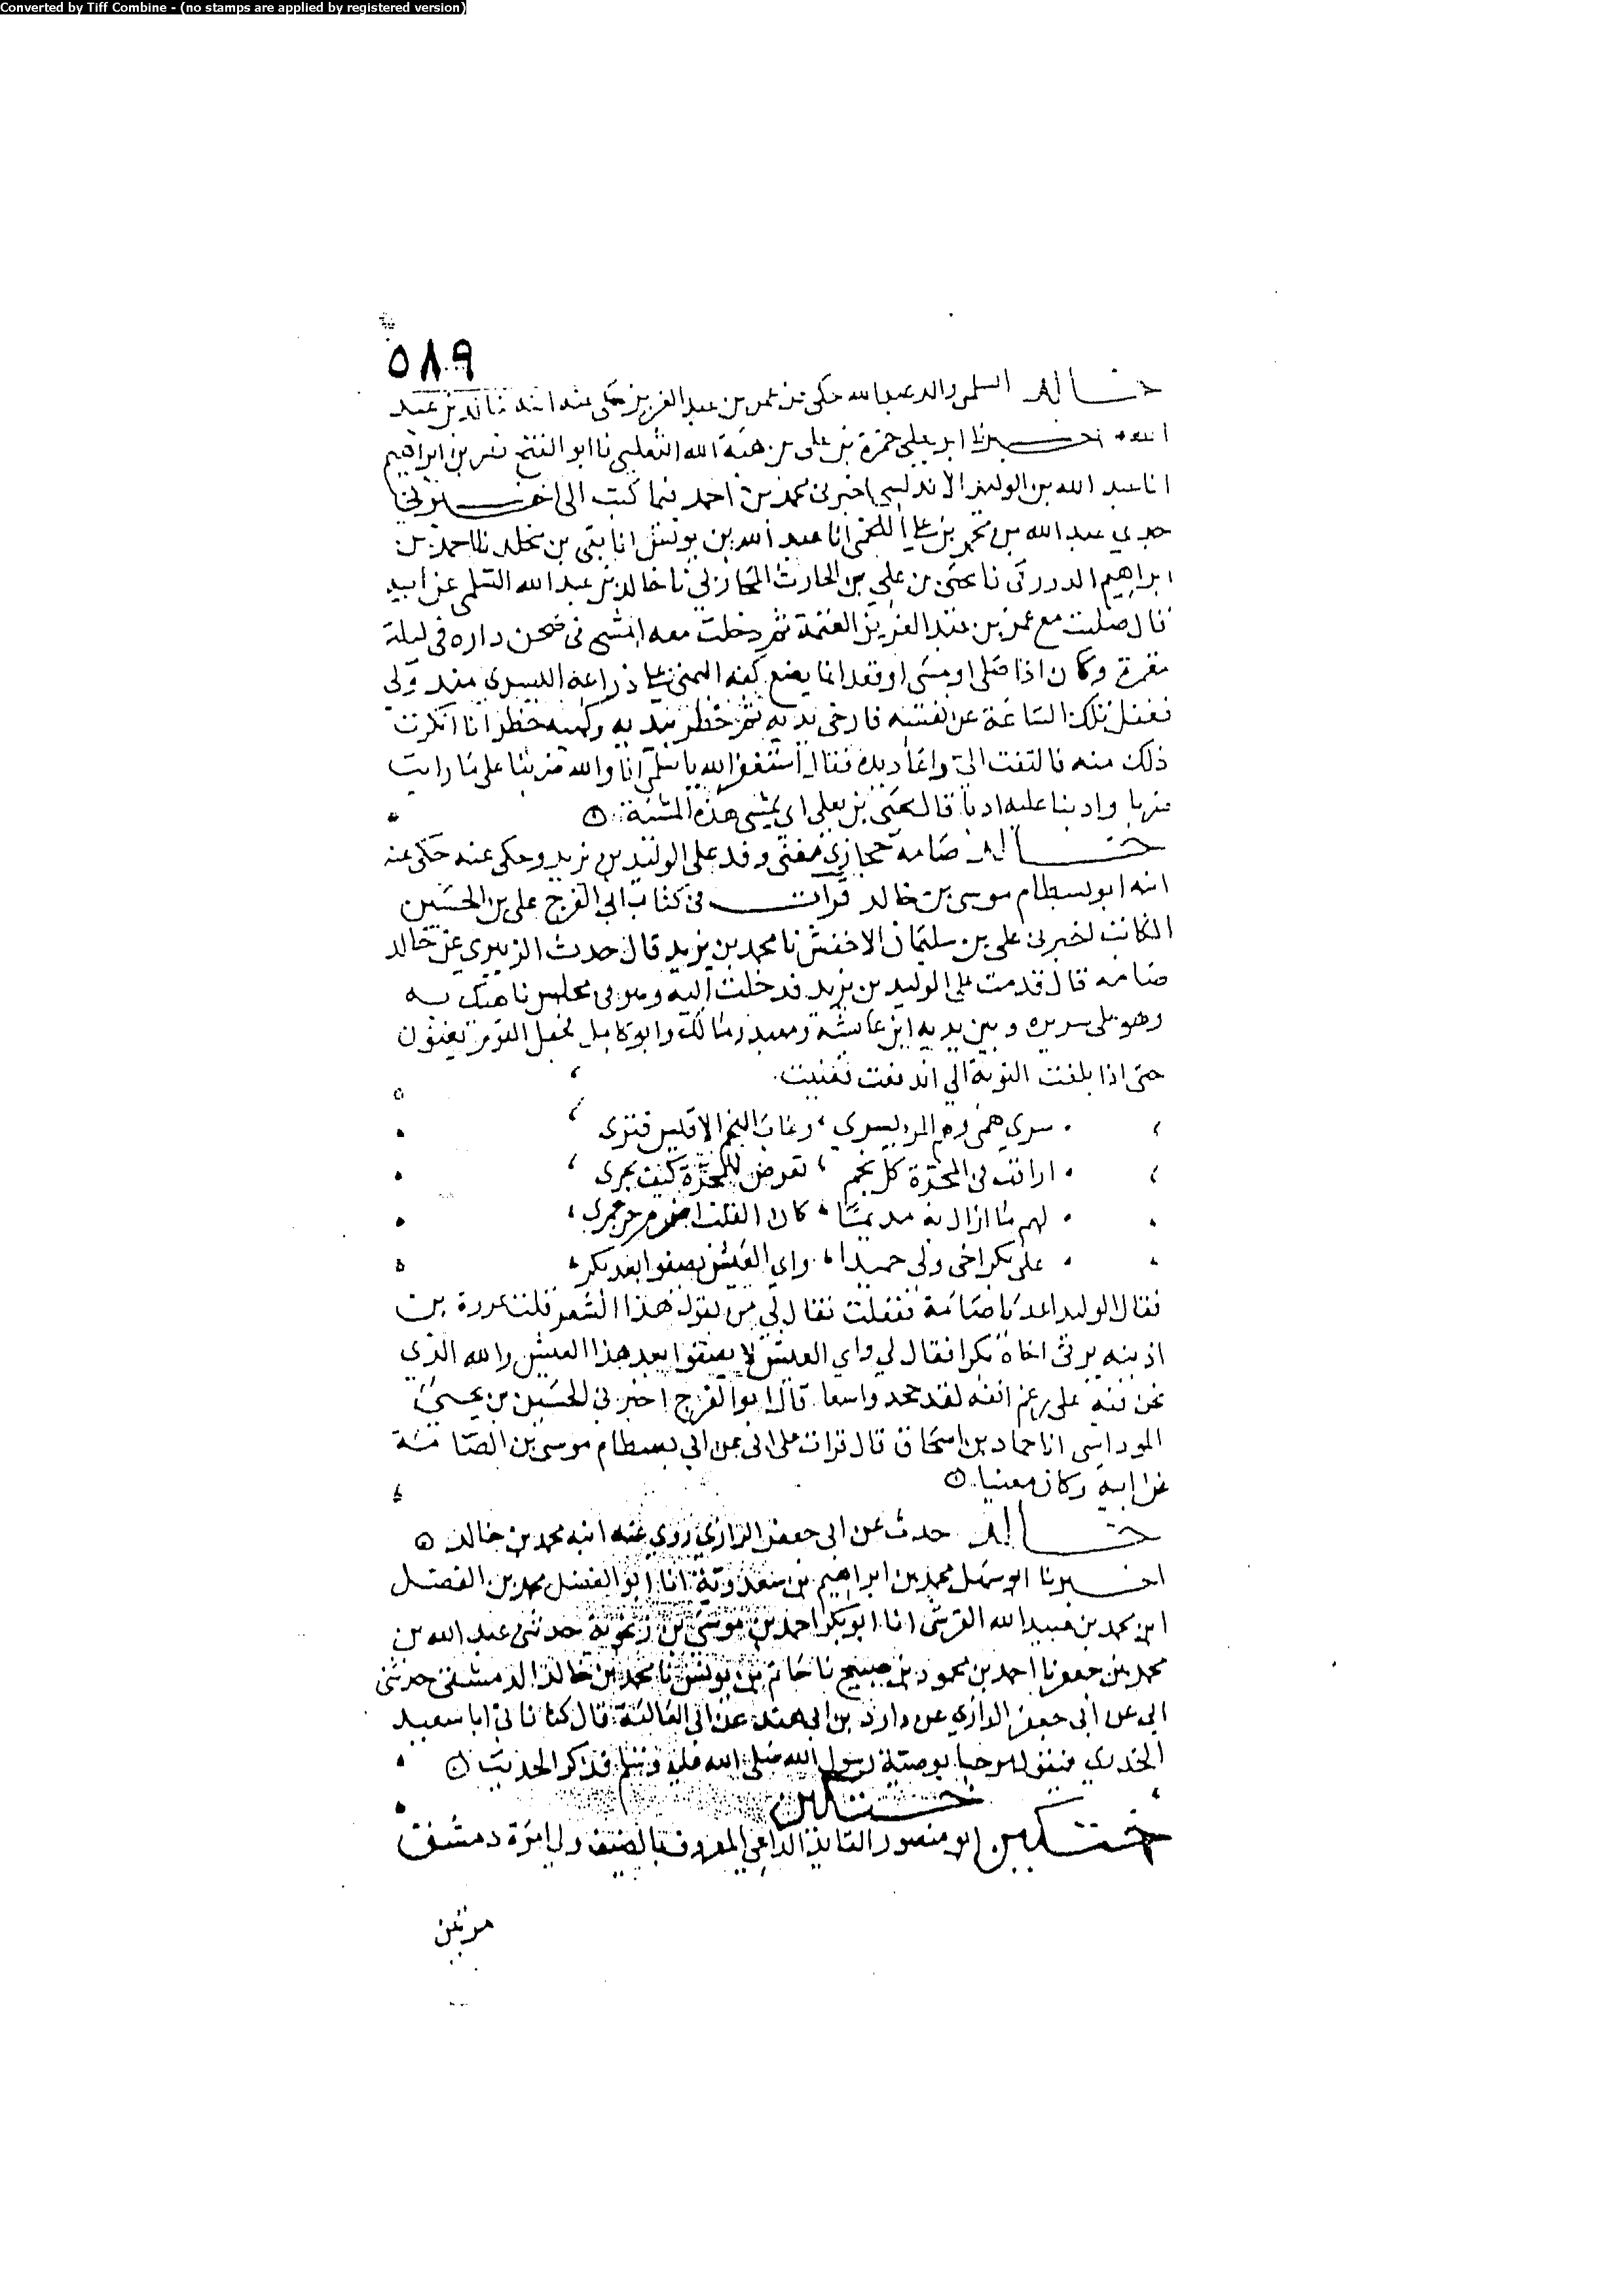 Converted by Tiff Combine - (no stamps are applied by registered version)
٥٨٩
خالد السلمي والد عبدالله حكى عن عمر بن عبد العزيز حكى عنه ابنه خالد بن عبد
الله اخبرنا ابو يعلى حمزة بن علي بن هبة الله الثعلبي نا ابو الفتح نصر بن ابراهيم
انا عبد الله بن الوليد الاندلسي اخبرني محمد بن احمد فيما كتب الى اخبرني
جدي عبد الله بن محمد بن علي اللخمي انا عبد الله بن يونس انا بقي بن مخلد نا احمد بن
ابراهيم الدورقي نا يحيى بن علي بن الحارث المحاربي نا خالد بن عبد الله السلمي عن ابيه
قال صليت مع عمر بن عبد العزيز العتمة ثم دخلت معه امشي في صحن داره في ليلة
مقمرة وكان اذا صلى او مشى او قعد انما يضع كفه اليمنى على ذراعه اليسرى منذ ولي
فغفل تلك الساعة عن نفسه فارخى يديه ثم خطر بيديه وكمه خطرانا انكرت
ذلك منه فالتفت الي وانما دبره فقال استغفر الله يا سلمي انا والله ضربنا على ما رايت
ضربا وادبنا عليه ادبا قال يحيى بن يعلى اي يمشي هذه المشية
خالد صامه حجازي مغني وفد على الوليد بن يزيد وحكى عنه حكى عنه
ابنه ابو بسطام موسى بن خالد قرات في كتاب ابي الفرج علي بن الحسين
الكاتب اخبرني علي بن سليمان الاخفش نا محمد بن يزيد قال حدث الزبيري عن خالد
صامه قال قدمت على الوليد بن يزيد فدخلت اليه وهو في مجلس ناهيك به
وهو على سريره وبين يديه ابن عائشة ومعبد ومالك وابو كامل فجعل القوم يغنون
حتى اذا بلغت النوبة الي اندفعت فغنيت
سرى همي وهم المرء يسري وغاب النجم الا قيس فتري
اراقب في المجرة كل نجم تعرض للمجرة كيف يجري
لهم ما ازال به مديما كان القلب اضرم حر جمري
على بكر اخي ولى حميدا واي العيش يصفوا بعد بكر
فقال الوليد اعد يا صامة ففعلت فقال لي من يقول هذا الشعر قلت عروة بن
اذينه يرثي اخاه بكرا فقال لي واي العيش لا يصفوا بعد هذا العيش والله الذي
نحن فيه على رغم انفه لقد تحجر واسعا قال ابو الفرج اخبرني الحسين بن يحيى
المرداسي انا حماد بن اسحاق قال قرات على ابي عن ابي بسطام موسى بن الصامة
عن ابيه وكان مغنيا
خالد حدث عن ابي جعفر الرازي روى عنه ابنه محمد بن خالد
اخبرنا ابو سهل محمد بن ابراهيم بن سعدويه انا ابو الفضل محمد بن الفضل
ابن محمد بن عبيد الله القرشي انا ابو بكر احمد بن موسى بن مردويه حدثني عبد الله بن
محمد بن جعفر نا احمد بن محمود بن صبيح نا حاتم بن يونس نا محمد بن خالد الدمشقي حدثني
ابي عن ابي جعفر الرازي عن داود بن ابي هند عن ابي العالية قال كنا ناتي ابا سعيد
الخدري فيقول مرحبا بوصية رسول الله صلى الله عليه وسلم فذكر الحديث
ختكين
ختكين ابو منصور القايد الداعي المعروف بالضيف ولي امرة دمشق
مرتين